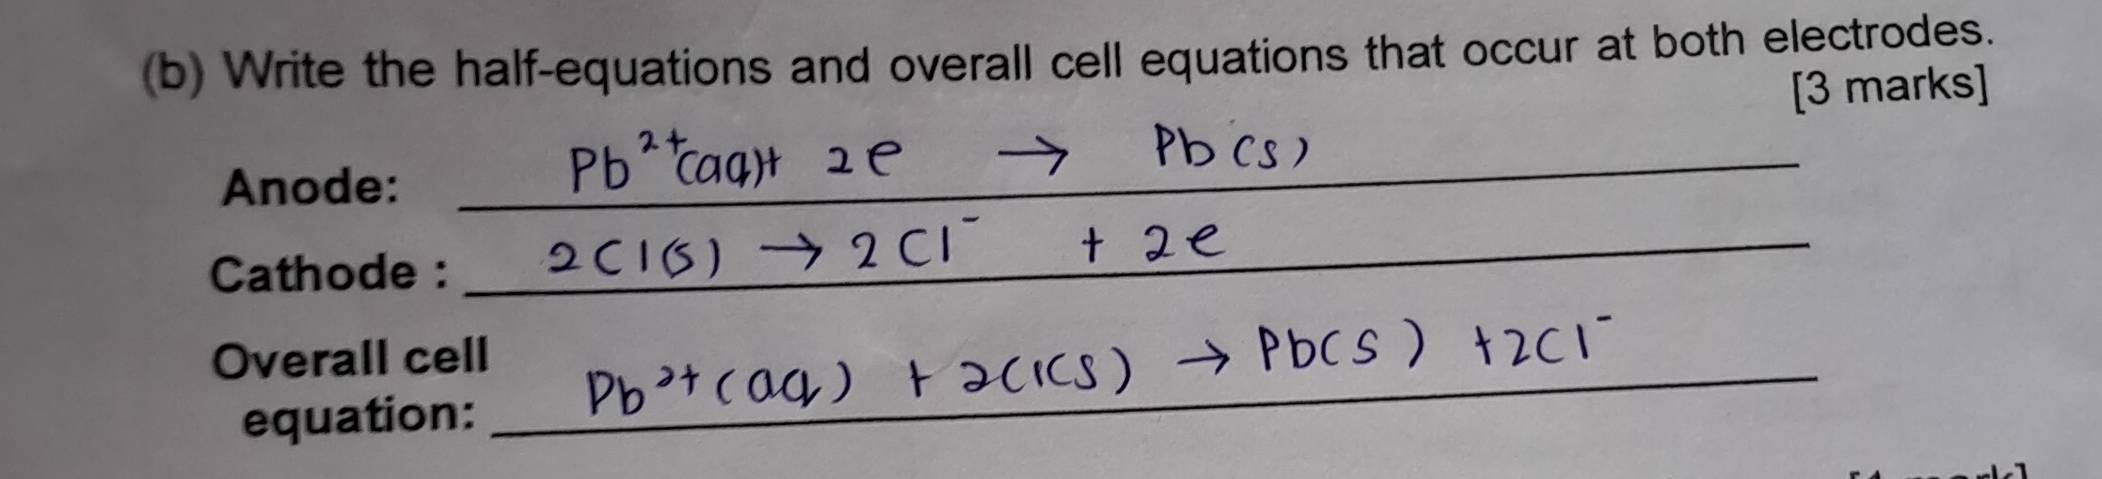 (b) Write the half-equations and overall cell equations that occur at both electrodes.
[3 marks]
Anode: Pb²⁺(aq)+ 2e → Pb(s)
Cathode : 2Cl(s) → 2Cl⁻ + 2e
Overall cell
equation: Pb²⁺(aq) + 2Cl(s) → Pb(s) +2Cl⁻